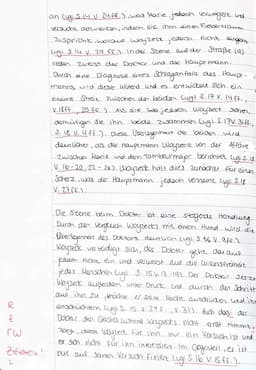 an (vgl. S. 14 V. 24 ff.), was Marie jedoch verneint und
versucht abzulenken, indem sie ihm einen Fieberraum
zuspricht, worauf Woyzeck jedoch nicht eingeht
(vgl. S. 14 V. 29 ff.). In der Szene auf der Straße (9)
reden zuerst der Doktor und der Hauptmann.
Durch eine Diagnose eines Schlaganfalls des Haupt-
manns, wird diese Wütend und es entwickelt sich ein
kleiner Streit zwischen den beiden (vgl. S. 17 V. 14 ff.,
V. 18 ff., 25 ff.). Als sie was jedoch Woyzeck sehen,
demütigen Sie ihn beide zusammen (vgl. S. 17 V. 31 ff.
S. 18 V. 4 ff.). Diese Überlegenheit der beiden wird
deutlicher, als die Hauptmann Woyzeck von der Affäre
zwischen Marie und dem Tambourmajor berichtet (vgl. S. 18
V. 16-20, 22-26). Woyzeck hält dies zunächst für einen
Scherz, was der Hauptmann jedoch verneint (vgl. S. 18
V. 27 ff.).
Die Szene beim Doktor ist eine steigende Handlung.
Durch den Vergleich Woyzecks mit einem Hund, wird die
Überlegenheit des Doktors deutlich (vgl. S. 15 V. 9 ff.).
Woyzeck verteidigt sich, der Doktor geht darauf
jedoch nicht ein und verweist auf die Willensfreiheit
jedes Menschen (vgl. S. 15 V. 13-19). Der Doktor setzt
Woyzeck außerdem unter Druck und durch den Schritt
auf ihn zu, möchte er seine Macht ausdrücken und ihn
einschüchtern (vgl. S. 15 V. 29 f., V. 31). Auch dass der
Doktor den Geisteszustand Woyzecks nicht ernst nimmt,
zeigt, dass Woyzeck für ihn nur ein Versuch ist und
er sich nicht für ihn interessiert. Im Gegenteil, er ist
nur auf seinen Versuch fixiert (vgl. S. 16 V. 15 ff.).
R
Z
TW
Zitieren!
L